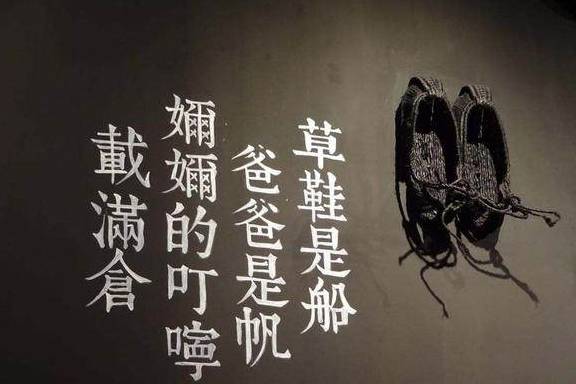 草鞋是船
爸爸是帆
嬭嬭的叮嚀
載滿倉